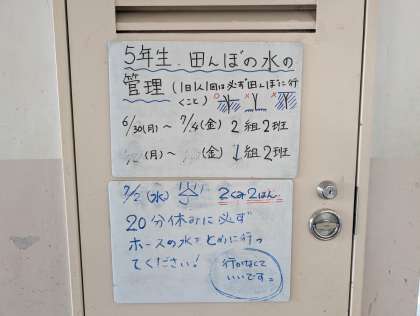 5年生 田んぼの水の
管理(1日1人1回は必ず田んぼに行
くこと)
6/30(月)〜7/4(金) 2組2班
(月)〜 (金) 1組2班
7/2(水) 2くみ2はん
20分休みに必ず
ホースの水をとめに行っ
てください!
行かなくて
いいです。